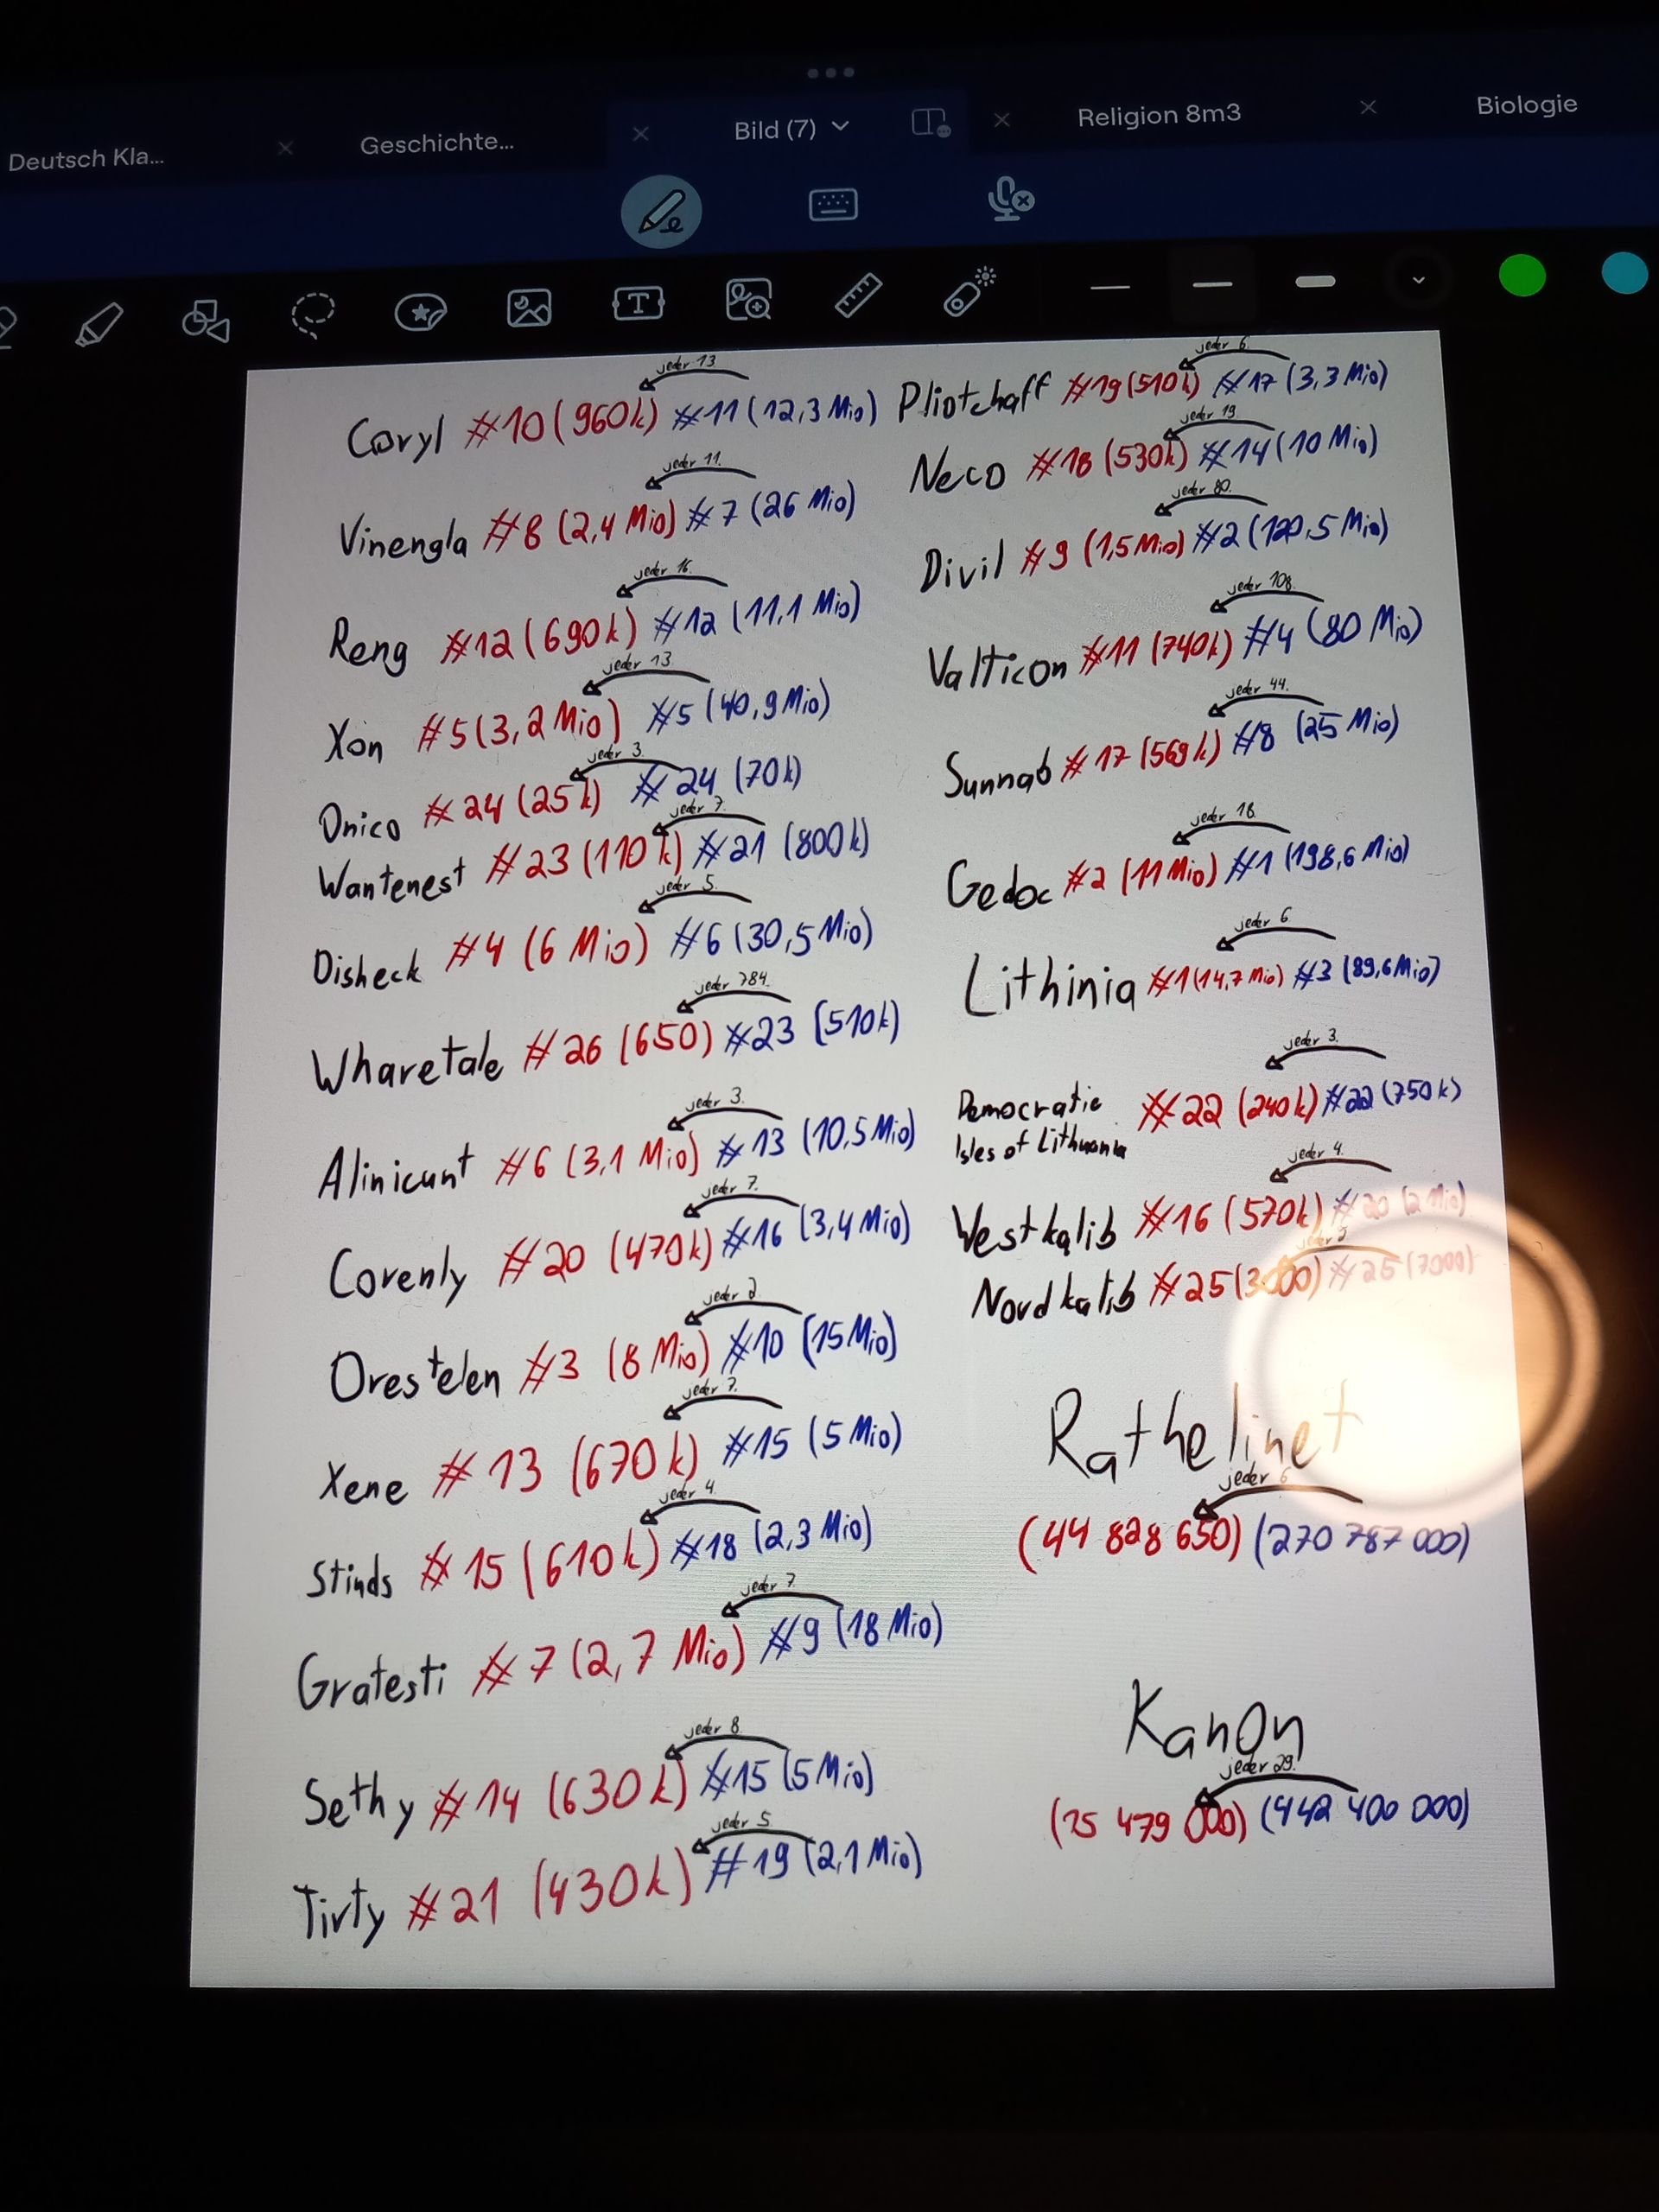 Deutsch Kla...
Geschichte...
Bild (7)
Religion 8m3
Biologie
jeder 13.
Caryl #10 (960k) #11 (12,3 Mio)
jeder 11.
Vinengla #8 (2,4 Mio) #7 (26 Mio)
jeder 16.
Reng #12 (690k) #12 (11,1 Mio)
jeder 13.
Xon #5 (3,2 Mio) #5 (40,9 Mio)
jeder 3.
Onico #24 (25k) #24 (70k)
jeder 7.
Wantenest #23 (110k) #21 (800k)
jeder 5.
Disheck #4 (6 Mio) #6 (30,5 Mio)
jeder 784.
Wharetale #26 (650) #23 (510k)
jeder 3.
Alinicunt #6 (3,1 Mio) #13 (10,5 Mio)
jeder 7.
Corenly #20 (470k) #16 (3,4 Mio)
jeder 2
Orestelen #3 (8 Mio) #10 (15 Mio)
jeder 7.
Xene #13 (670k) #15 (5 Mio)
jeder 4.
Stinds #15 (610k) #18 (2,3 Mio)
jeder 7.
Gratesti #7 (2,7 Mio) #9 (18 Mio)
jeder 8.
Sethy #14 (630k) #15 (5 Mio)
jeder 5.
Tirty #21 (430k) #19 (2,1 Mio)
jeder 6.
Pliotchaff #19 (510k) #17 (3,3 Mio)
jeder 19.
Neco #18 (530k) #14 (10 Mio)
jeder 80.
Divil #9 (1,5 Mio) #2 (120,5 Mio)
jeder 108.
Valticon #11 (740k) #4 (80 Mio)
jeder 44.
Sunnab #17 (569k) #8 (25 Mio)
jeder 18.
Gedoc #2 (11 Mio) #1 (198,6 Mio)
jeder 6.
Lithinia #1 (14,7 Mio) #3 (89,6 Mio)
jeder 3.
Democratic #22 (240k) #22 (750k)
Isles of Lithuania
jeder 4.
Westkalib #16 (570k) #20 (2 Mio)
jeder
Nordkalib #25 (3000) #25 (7000)
Rathelinet
jeder 6
(44 828 650) (270 787 000)
KanOn
jeder 29.
(15 479 000) (442 400 000)